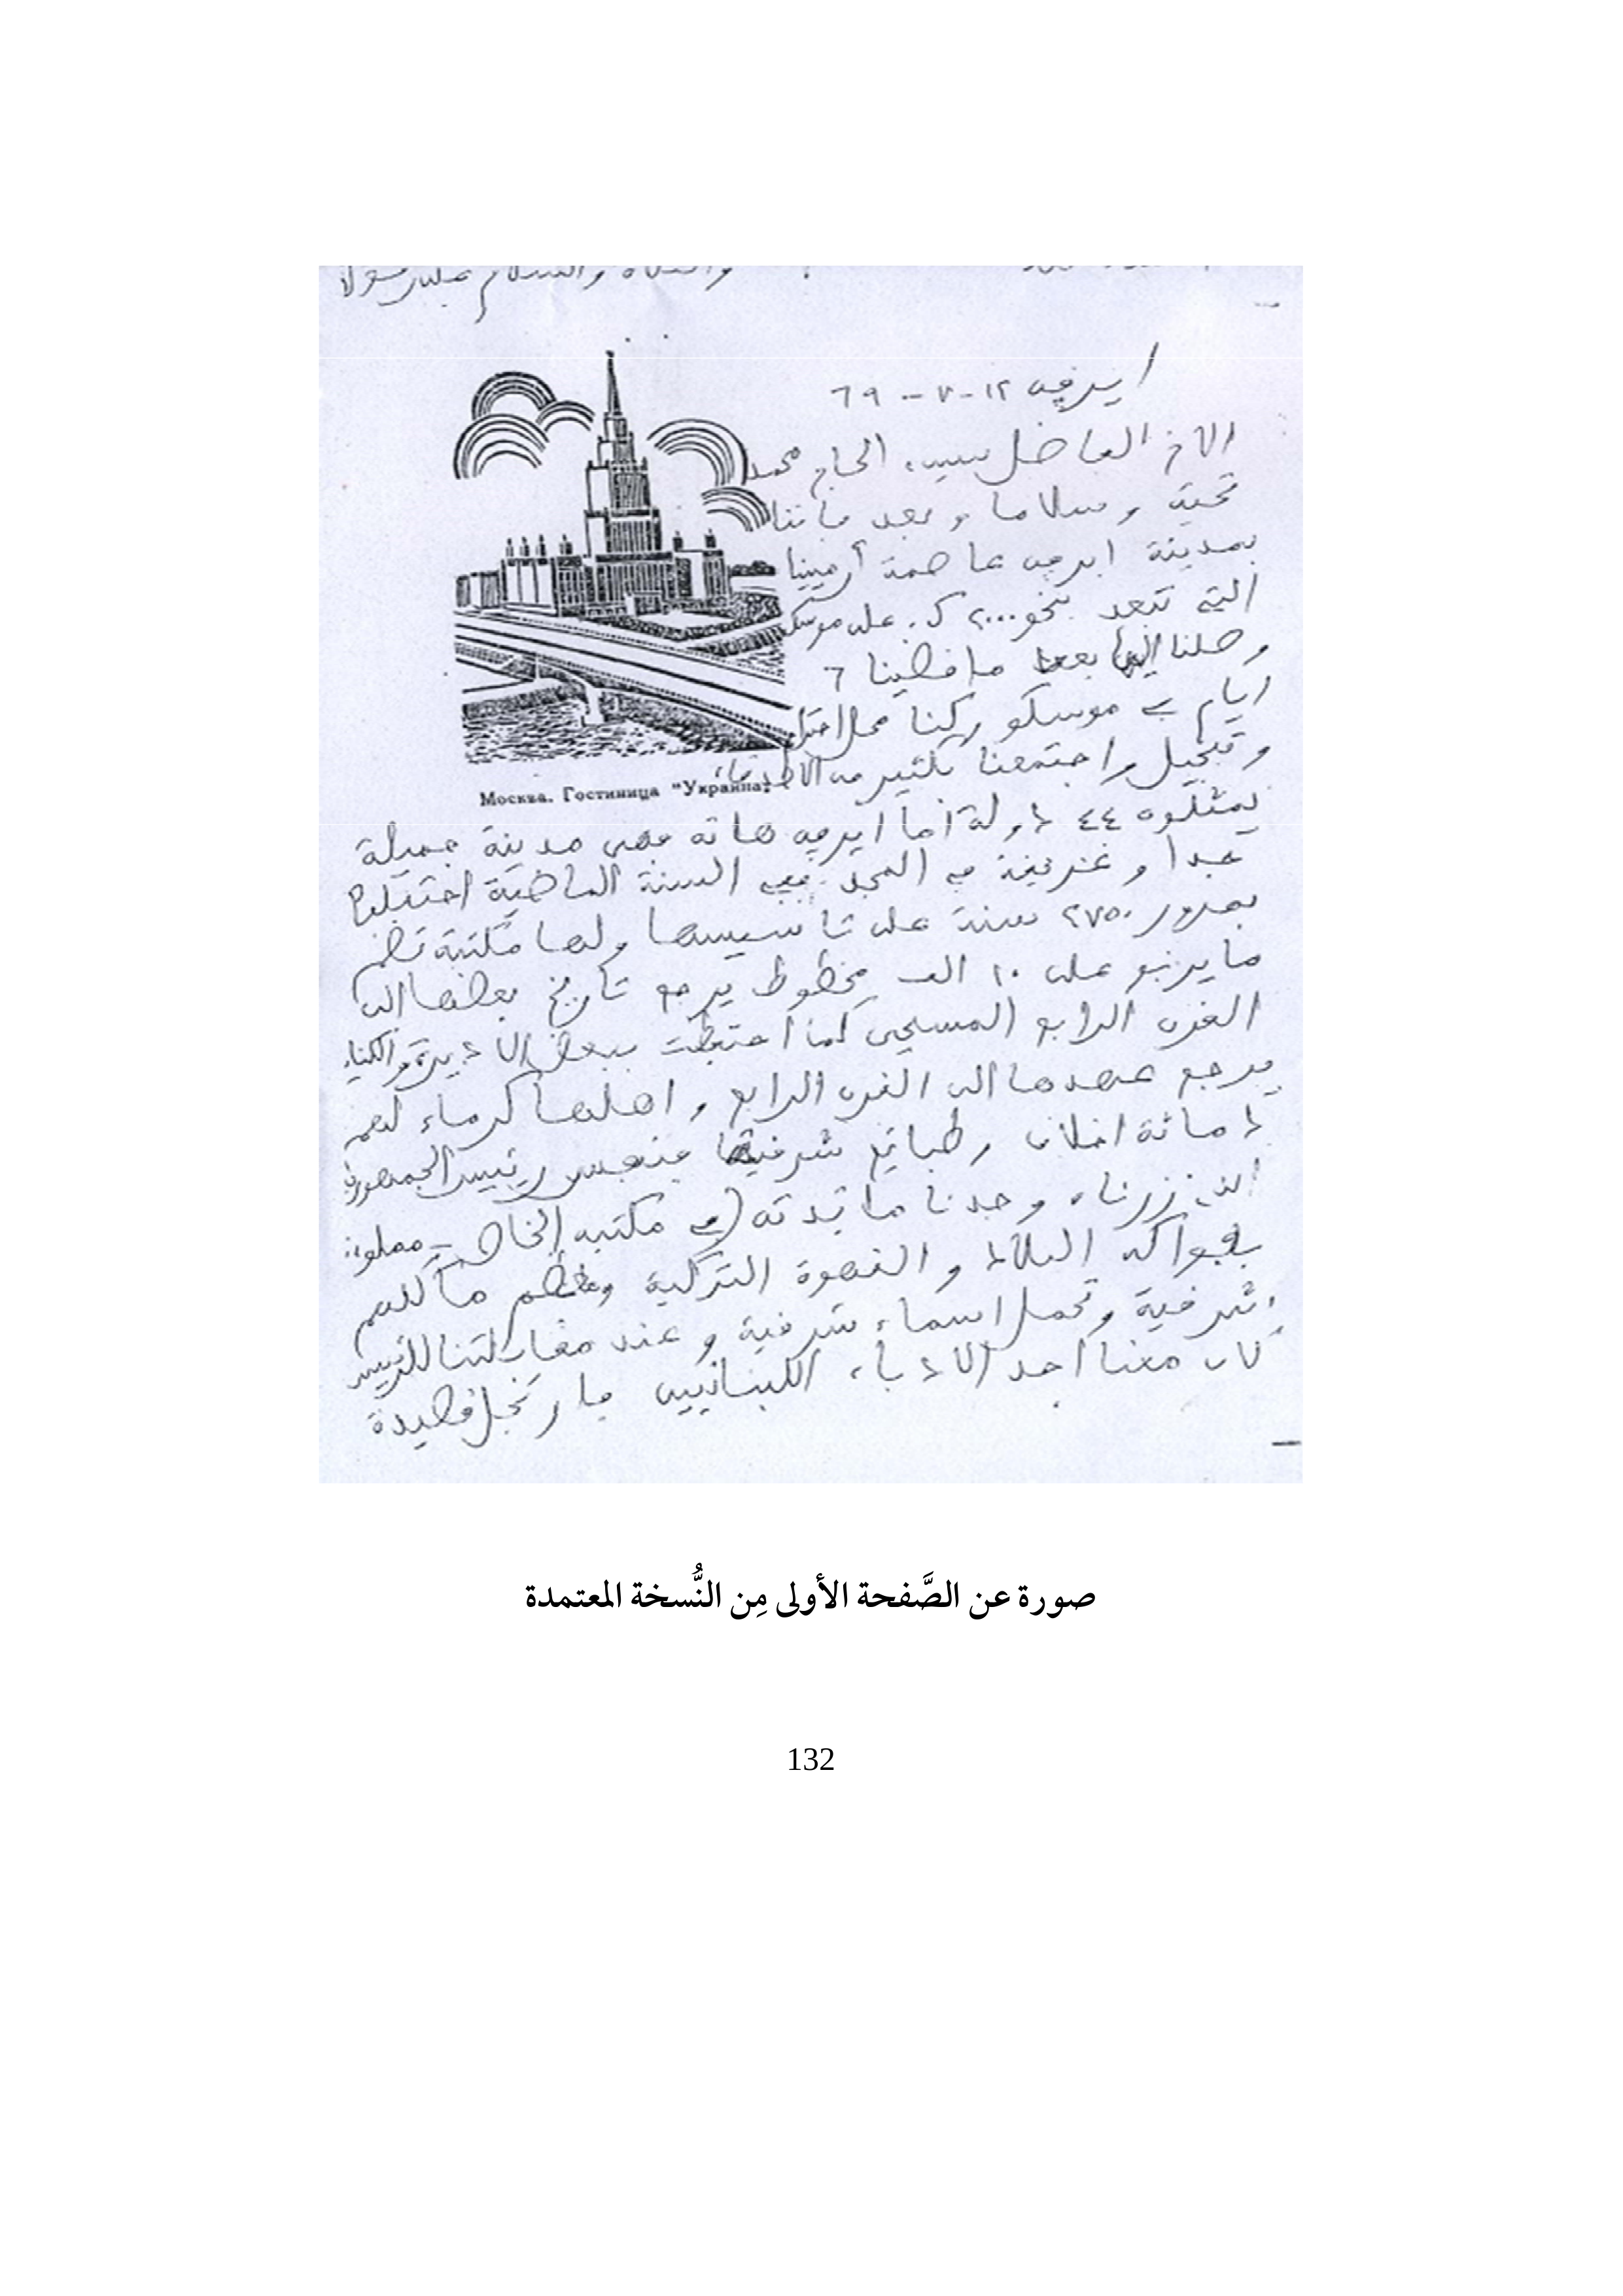 والصلاة والسلام على رسول
ايرفن ١٢-٧-٦٩
الاخ الفاضل سيدي الحاج محمد
تحية وسلاما وبعد فاننا
بمدينة ايرفن عاصمة أرمينيا
التي تبعد بنحو ٢٠٠٠ ك. على موسكو
وصلنا إليها بعد ما قضينا ٦
ايام في موسكو وكنا محل احترام
وتبجيل واجتمعنا بكثير من الأطباء
يمثلون ٤٤ دولة أما ايرفن هاته فهي مدينة جميلة
جدا و عريقة في المجد ففي السنة الماضية احتفلوا
بمرور ٢٧٥٠ سنة على تاسيسها ولها مكتبة تضم
ما يربو على ١٠ الف مخطوط يرجع تاريخ بعضها الى
القرن الرابع المسيحي كما احتفظت ببعض الأديرة والكنائس
يرجع عهدها الى القرن الرابع و اهلها كرماء لهم
دماثة اخلاق وطبائع شرقية فنفس رئيس الجمهورية
الذي زرناه وجدنا مائدته في مكتبه الخاص مملوءة
بفواكه البلاد و القهوة التركية ومعظم مآكلهم
شرقية وتحمل اسماء شرقية و عند مقابلتنا للرئيس
كان معنا أحد الادباء اللبنانيين فارتجل قصيدة
Москва. Гостиница "Украина"
صورة عن الصَّفحة الأولى مِن النُّسخة المعتمدة
132